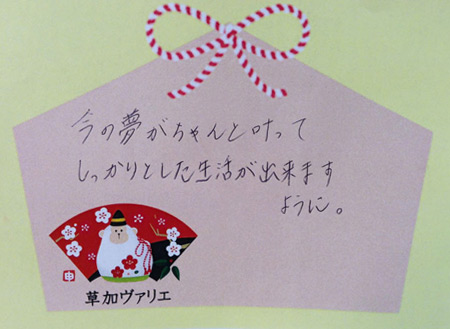 今の夢がちゃんと叶って
しっかりとした生活が出来ます
ように。
申
草加ヴァリエ